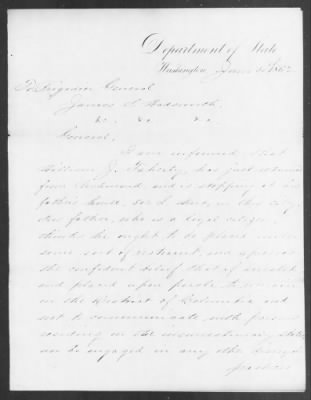 Department of State
Washington, June 1862
To Brigadier General
James S. Wadsworth.
&c. &c. &c.
General,
I am informed that
William J. Faherty, has just returned
from Richmond, and is stopping at his
father's house, street, in this city.
His father, who is a loyal citizen,
thinks he ought to be placed under
some sort of restraint, and expresses
the confident belief that if arrested
and placed upon parole to remain
in the District of Columbia and
not to communicate with persons
residing in the insurrectionary states
nor be engaged in any other
practices